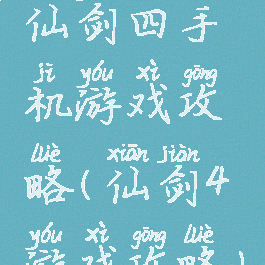 仙剑四手
jī yóu xì gōng
机游戏攻
lüè xiān jiàn
略(仙剑4
yóu xì gōng lüè
游戏攻略)